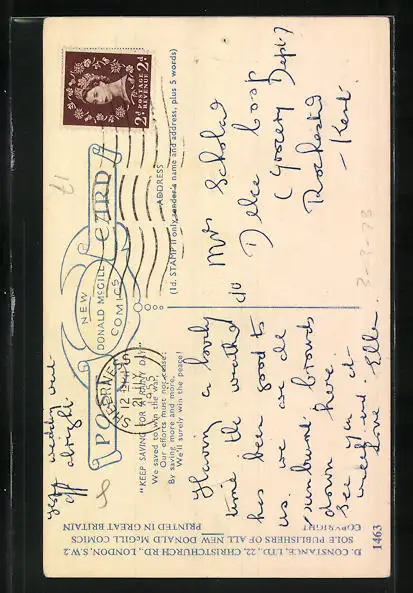 yes wedding went
off alright.
POST CARD
NEW
DONALD McGILL
COMICS
"KEEP SAVING FOR A RAINY DAY"
We saved to win the war,
Our efforts must not cease;
By saving more and more,
We'll surely win the peace!
SHEERNESS
21 JLY
1955
Having a lovely
time the weather
has been good to
us. we are all
sunburnt & browns
down here.
See you at
week-end. Ellen.
ADDRESS
(1d. STAMP if only sender's name and address, plus 5 words)
POSTAGE
REVENUE
2d 2d
Mrs Scholar
c/o Delce Coop
(Grocery Dept)
Rochester
- Kent.
1463
D. CONSTANCE, LTD., 22, CHRISTCHURCH RD., LONDON, S.W.2
SOLE PUBLISHERS OF ALL NEW DONALD McGILL COMICS
COPYRIGHT PRINTED IN GREAT BRITAIN